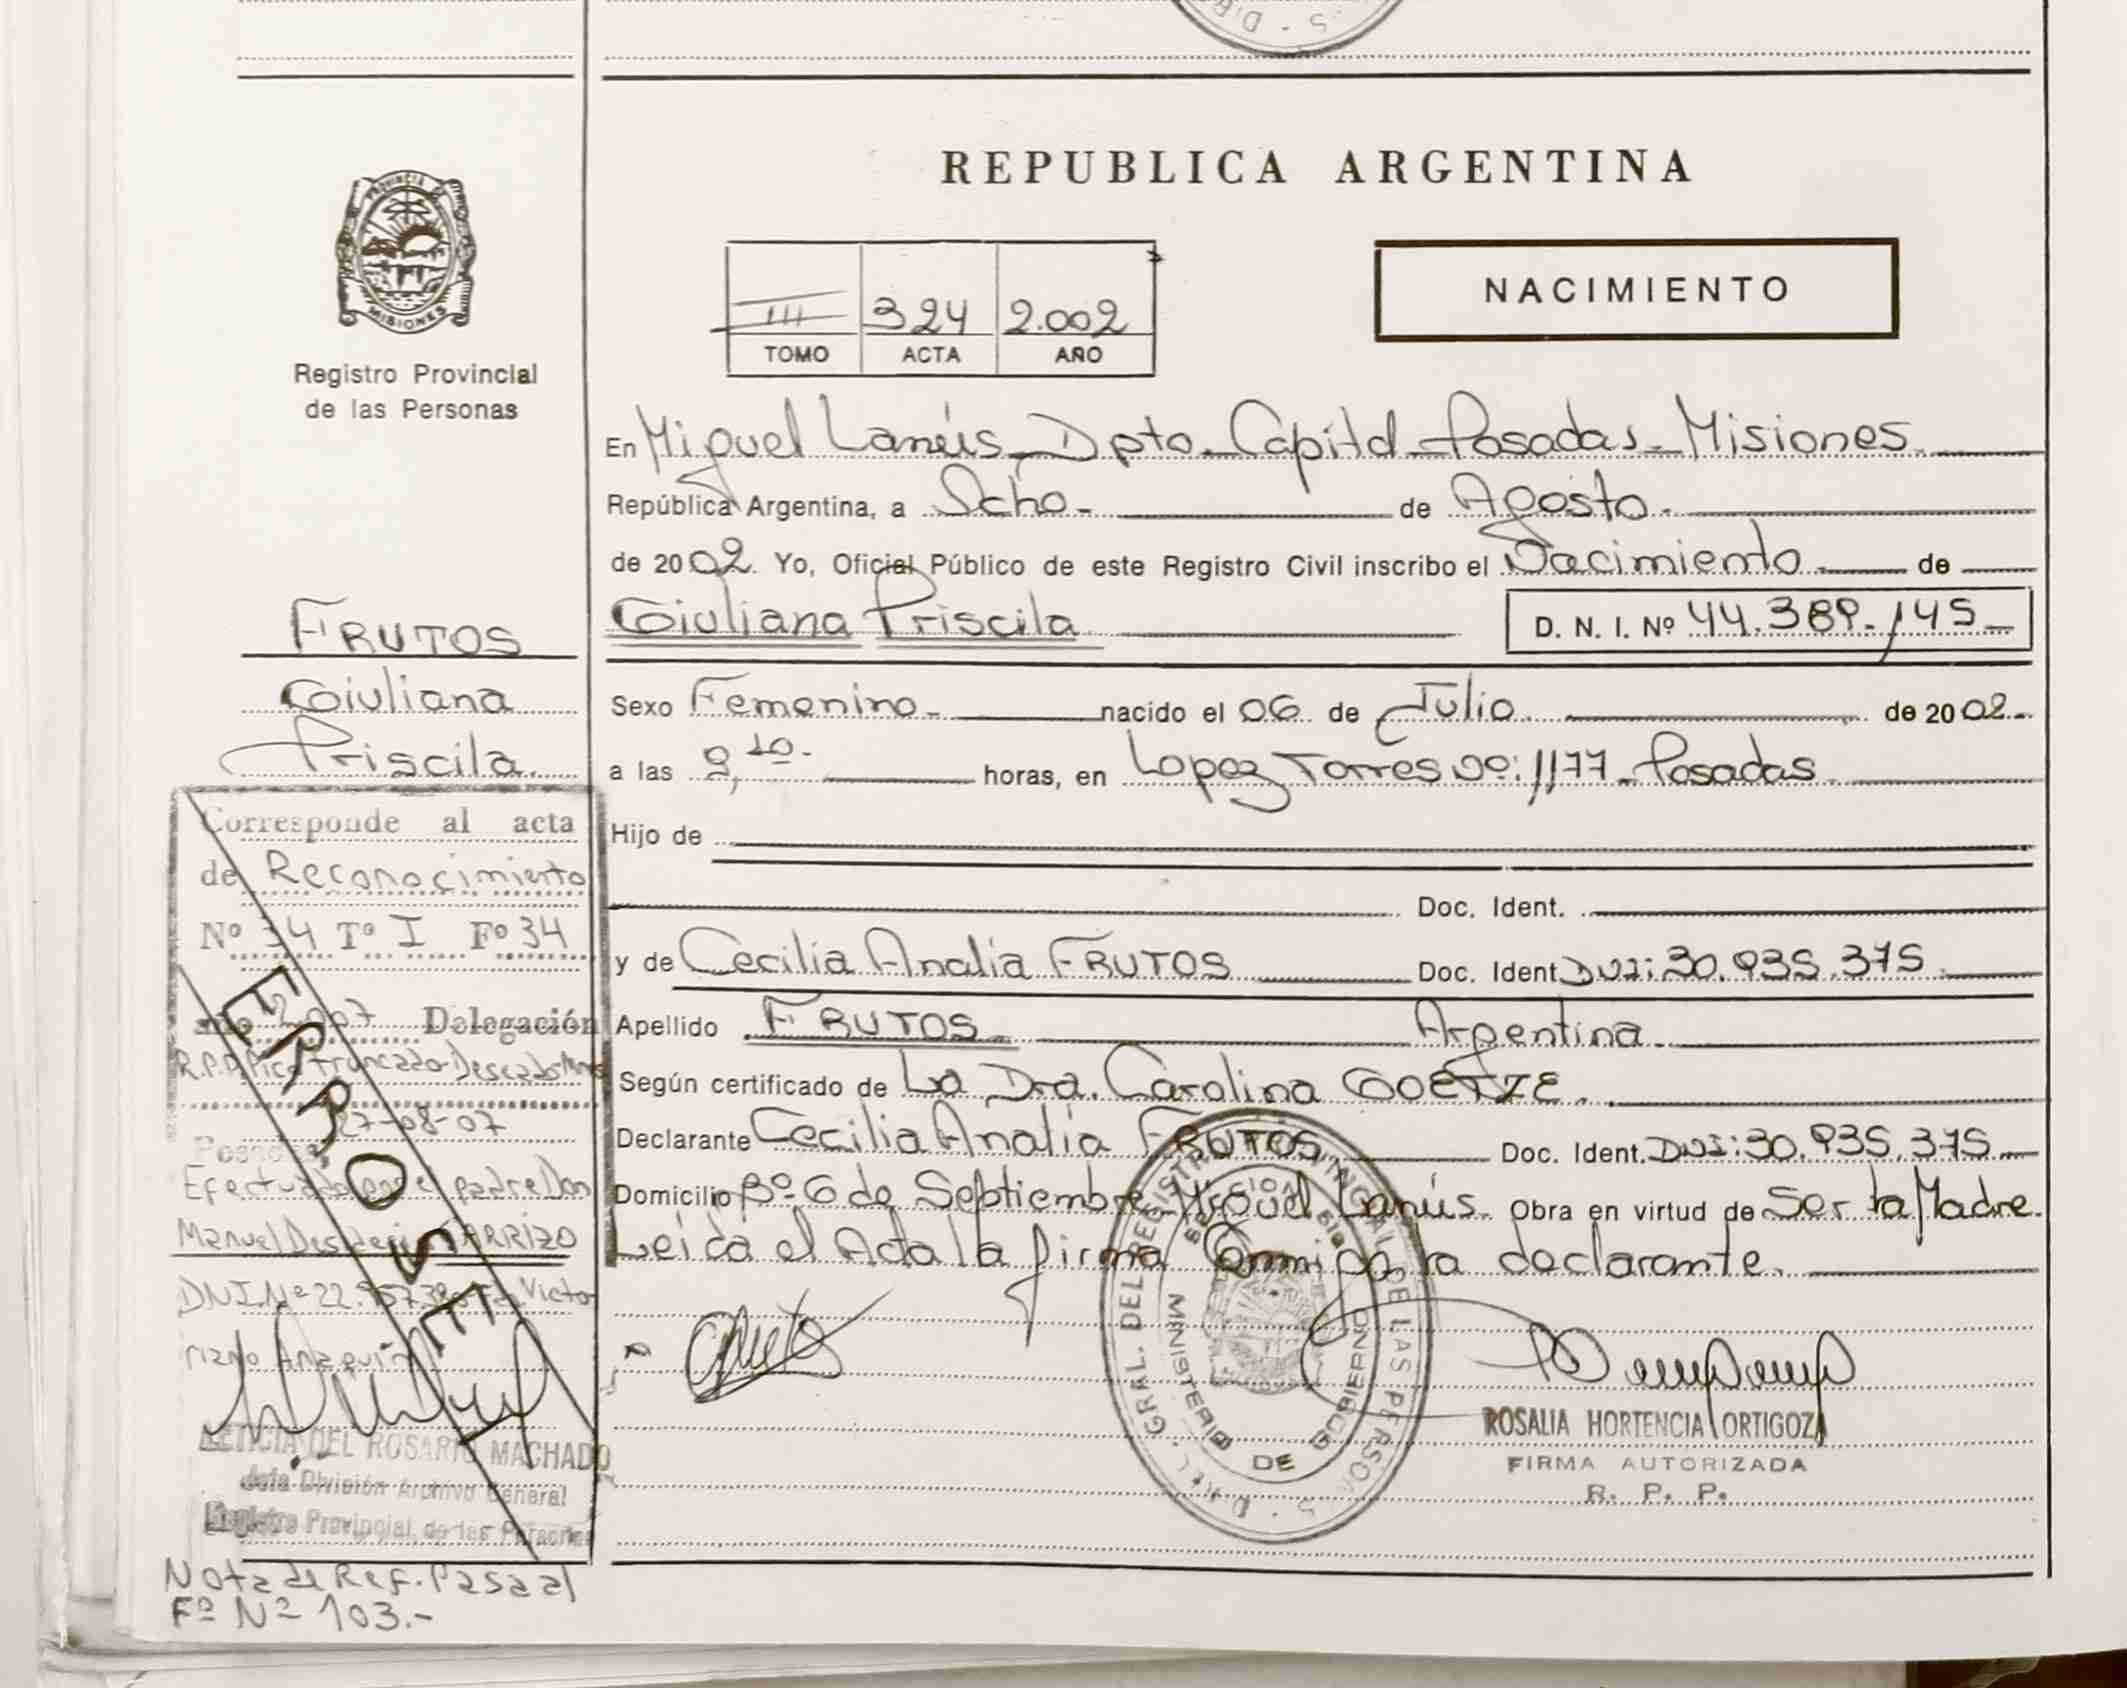 REPUBLICA ARGENTINA
NACIMIENTO
PROVINCIA
MISIONES
Registro Provincial
de las Personas
III 324 2.002
TOMO ACTA AÑO
En Miguel Lanús - Dpto. Capital - Posadas - Misiones.
República Argentina, a Ocho - de Agosto.
de 2002. Yo, Oficial Público de este Registro Civil inscribo el Nacimiento de
Giuliana Priscila D. N. I. Nº 44.389.145
Sexo Femenino nacido el 06 de Julio de 2002.
a las 9,10 horas, en Lopez Torres Nº: 1177 - Posadas
Hijo de
Doc. Ident.
y de Cecilia Analía FRUTOS Doc. Ident DNI: 30.935.375
Apellido FRUTOS Argentina.
Según certificado de La Dra. Carolina GOETZE.
Declarante Cecilia Analía FRUTOS Doc. Ident. DNI: 30.935.375
Domicilio Bº 6 de Septiembre Miguel Lanús. Obra en virtud de Ser la Madre.
Leída el Acta la firma Conmigo la declarante.
FRUTOS
Giuliana
Priscila.
Corresponde al acta
de Reconocimiento
Nº 34 Tº I Fº 34
año 2.007 Delegación
R.P.P. Pico Truncado-Deseado
27-08-07
Posadas,
Efectuado por el padre Don
Manuel CARRIZO
DNI. Nº 22. Victo
LETICIA DEL ROSARIO MACHADO
Jefe División Archivo General
Registro Provincial de las Personas
ERROSE
Nota de Ref. Pasa al
Fº Nº 103.-
DE LAS PERSONAS
MINISTERIO DE GOBIERNO
ROSALIA HORTENCIA ORTIGOZA
FIRMA AUTORIZADA
R. P. P.